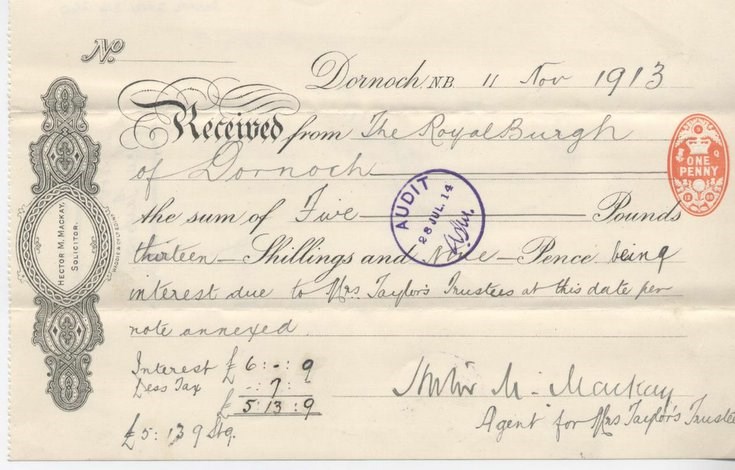 No
Dornoch N.B. 11 Nov 1913
Received from The Royal Burgh
of Dornoch
the sum of Five Pounds
thirteen Shillings and Nine Pence being
interest due to Mrs Taylor's Trustees at this date per
note annexed.
Interest £ 6 : - : 9
Less Tax - : 7 : -
£ 5 : 13 : 9
£5 : 13 9 Stg.
Hector M. Mackay
Agent for Mrs Taylor's Trustees
HECTOR M. MACKAY,
SOLICITOR.
AUDIT
28 JUL. 14
ONE
PENNY